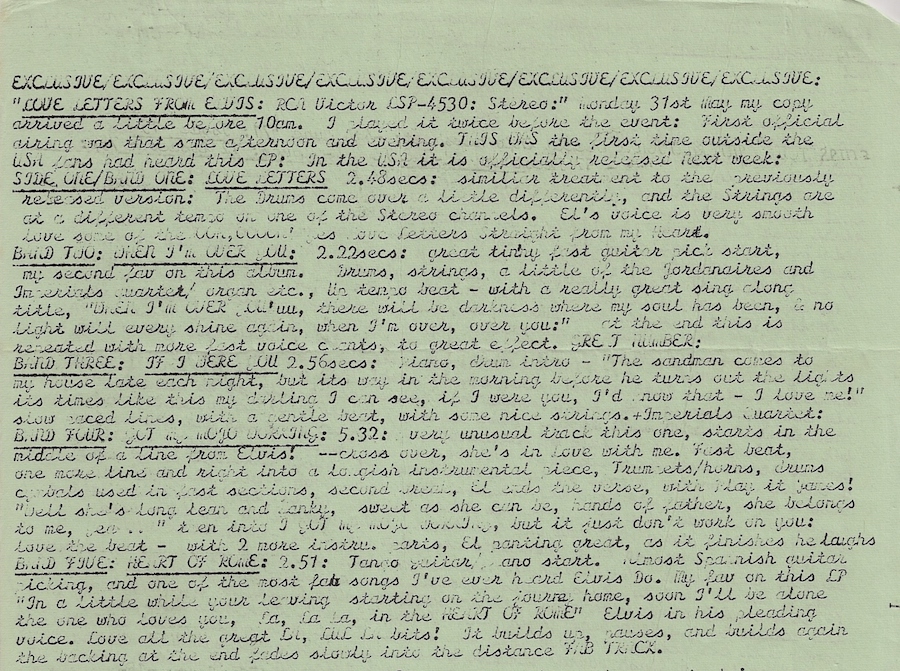 EXCLUSIVE/EXCLUSIVE/EXCLUSIVE/EXCLUSIVE/EXCLUSIVE/EXCLUSIVE/EXCLUSIVE/EXCLUSIVE:
"LOVE LETTERS FROM ELVIS: RCA Victor LSP-4530: Stereo:" Monday 31st May my copy
arrived a little before 10am. I played it twice before the event: First official
airing was that same afternoon and evening. THIS WAS the first time outside the
USA fans had heard this LP: In the USA it is officially released Next week:
SIDE ONE/BAND ONE: LOVE LETTERS 2.48secs: similiar treatment to the previously
released version: The Drums come over a little differently, and the Strings are
at a different tempo on one of the Stereo channels. El's voice is very smooth
love some of the Love Letters Straight from my Heart.
BAND TWO: WHEN I'M OVER YOU: 2.22secs: great tinny fast guitar pick start,
my second fav on this album. Drums, strings, a little of the Jordanaires and
Imperials Quartet/ organ etc., Up tempo beat - with a really great sing along
title, "When I'M OVER YOU'uu, there will be darkness where my soul has been, & no
light will every shine again, when I'm over, over you:" at the end this is
repeated with more fast voice chants, to great effect. GREAT NUMBER:
BAND THREE: IF I WERE YOU 2.56secs: Piano, drum intro - "The sandman comes to
my house late each night, but its way in the morning before he turns out the lights
its times like this my darling I can see, if I were you, I'd know that - I love me!"
slow paced lines, with a gentle beat, with some nice strings.+Imperials Quartet:
BAND FOUR: GOT MY MOJO WORKING: 5.32: very unusual track this one, starts in the
middle of a line from Elvis! --cross over, she's in love with me. Fast beat,
one more line and right into a longish instrumental piece, Trumpets/horns, drums
cymbals used in fast sections, second break, El ends the verse, with Play it James!
"Well she's long lean and lanky, sweet as she can be, hands of father, she belongs
to me, yea .. " then into I GOT MY MOJO WORKING, but it just don't work on you:
love the beat - with 2 more instru. parts, El panting great, as it finishes he laughs
BAND FIVE: HEART OF ROME: 2.51: Tango guitar/piano start. Almost Spanish guitar
picking, and one of the most fab songs I've ever heard Elvis Do. My fav on this LP
"In a little while your leaving starting on the journey home, soon I'll be alone
the one who loves you, La, La La, in the HEART OF ROME" Elvis in his pleading
voice. Love all the great bits! It builds up, pauses, and builds again
the backing at the end fades slowly into the distance FAB TRACK.